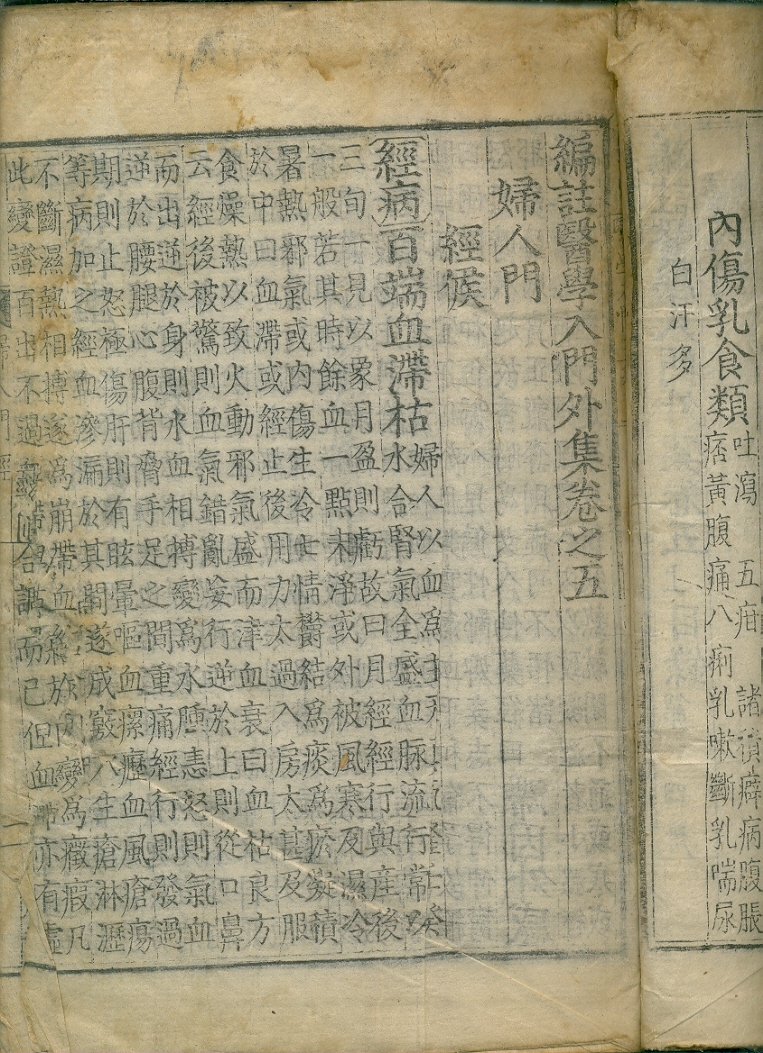 內傷乳食類
吐瀉 五疳 諸積癖病腹脹
痞黃腹痛八痢乳嗽斷乳喘尿
白汗多
編註醫學入門外集卷之五
婦人門
經候
經病百端血滯枯
婦人以血爲主
水合腎氣全盛血脉流行常以
三旬一見以象月盈則虧故曰月經經行與産後
一般若其時餘血一點未淨或外被風寒及濕冷
暑熱邪氣或內傷生冷七情鬱結爲痰爲瘀凝積
於中曰血滯或經止後用力太過入房太甚及服
食燥熱以致火動邪氣盛而津血衰曰血枯良方
云經後被驚則血氣錯亂妄行逆於上則從口鼻
而出逆於身則水血相搏變爲水腫恚怒則氣血
逆於腰腿心腹背脅手足之間重痛經行則發過
期則止怒極傷肝則有眩暈嘔血瘰癧血風瘡瘍
等病加之經血滲漏於其間遂成竅穴生瘡淋瀝
不斷濕熱相搏遂爲崩帶血結於內變爲癥瘕凡
此變證百出不過血滯而已但血滯亦有虛